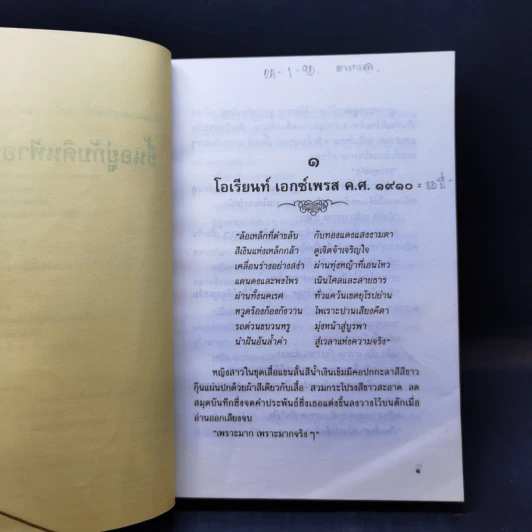 ๑
โอเรียนท์ เอกซ์เพรส ค.ศ. ๑๙๑๐
"ล้อเหล็กที่ดำขลับ กับทองแดงแสงงามตา
สีเงินแห่งเหล็กกล้า ดูเจิดจ้าเจริญใจ
เคลื่อนร่างอย่างสง่า ผ่านทุ่งหญ้าที่เอนไหว
แดนดงและพงไพร เนินไศลและสายธาร
ผ่านทั้งนคเรศ ทั่วแคว้นเขตยุโรปย่าน
หวูดร้องก้องกังวาน ไพเราะปานเสียงคีตา
รถด่วนขบวนหรู มุ่งหน้าสู่บูรพา
นำฝันอันล้ำค่า สู่เวลาแห่งความจริง"
หญิงสาวในชุดเสื้อแขนสั้นสีน้ำเงินเข้มมีคอปกกะลาสีสีขาว
กุ๊นแผ่นปกด้วยผ้าสีเดียวกับเสื้อ สวมกระโปรงสีขาวสะอาด ลด
สมุดบันทึกซึ่งจดคำประพันธ์ซึ่งเธอแต่งขึ้นลงวางไว้บนตักเมื่อ
อ่านออกเสียงจบ
"เพราะมาก เพราะมากจริง ๆ"